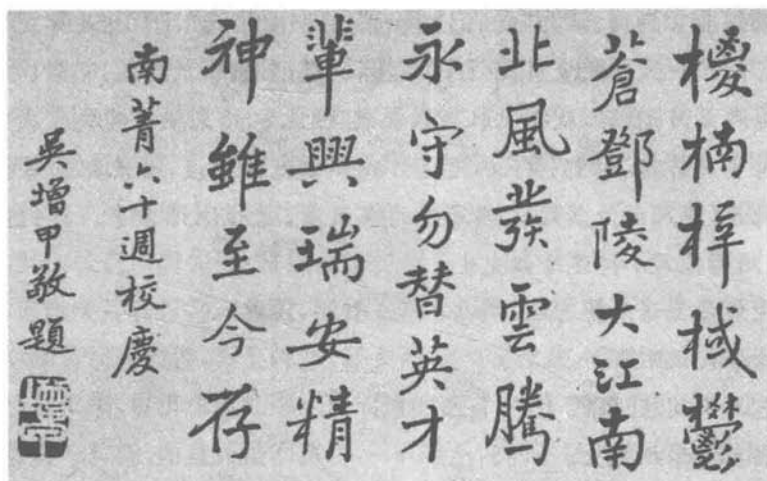 楩楠梓棫鬱
蒼鄧陵大江南
北風發雲騰
永守勿替英才
輩興瑞安精
神雖至今存
南菁六十週校慶
吳增甲敬題